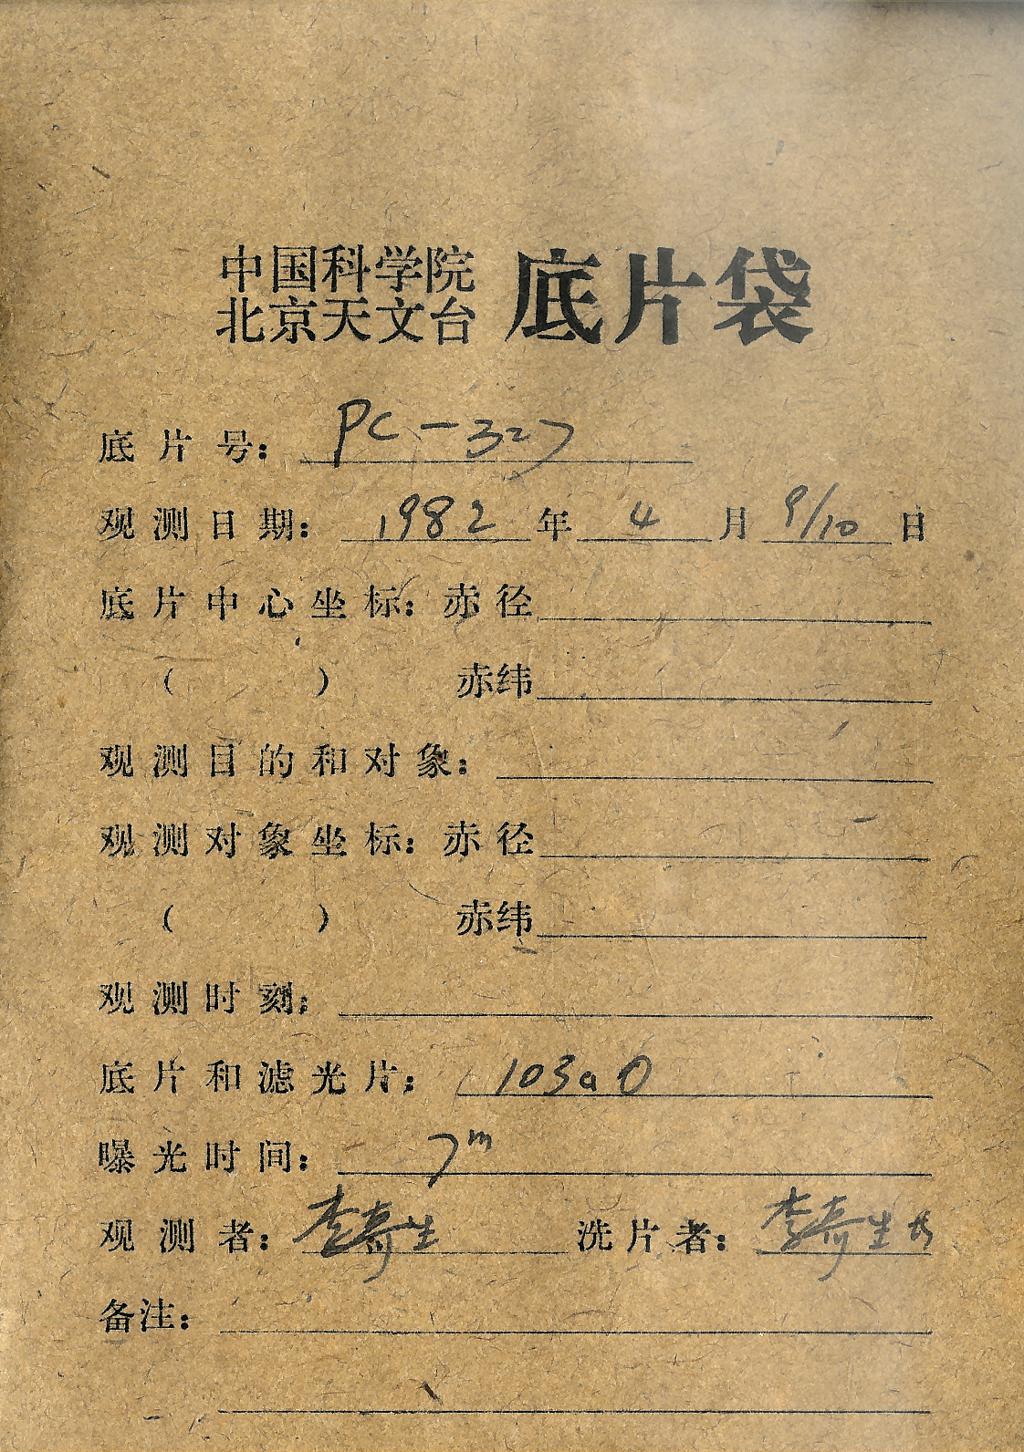 中国科学院
北京天文台
底片袋
底片号: PC-327
观测日期: 1982年4月9/10日
底片中心坐标: 赤径
( ) 赤纬
观测目的和对象:
观测对象坐标: 赤径
( ) 赤纬
观测时刻:
底片和滤光片: 103aO
曝光时间: 7m
观测者: 李寿生 洗片者: 李寿生
备注: